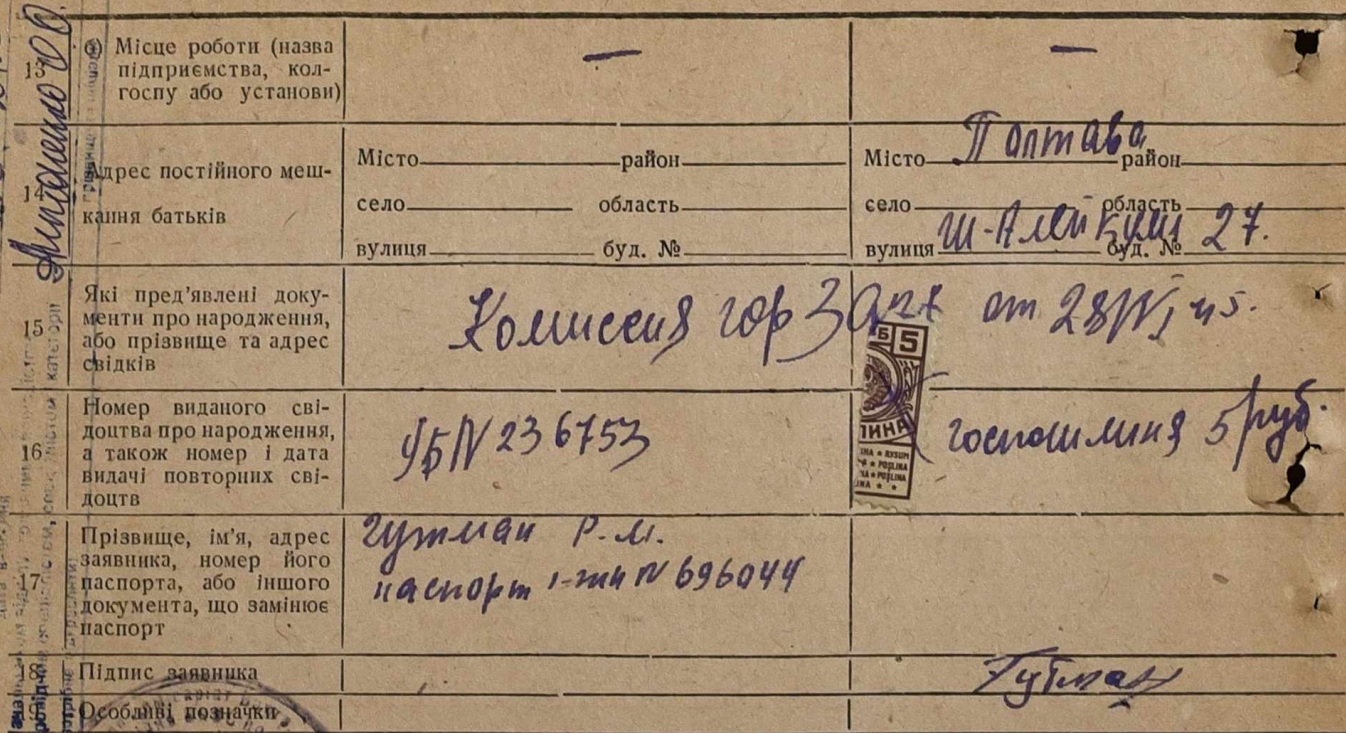 13 е) Місце роботи (назва
підприємства, кол-
госпу або установи) — —
14 Адрес постійного меш-
кання батьків
Місто район
село область
вулиця буд. №
Місто Полтава район
село область
вулиця Ш-Алейхума буд. № 27.
15 Які пред'явлені доку-
менти про народження,
або прізвище та адрес
свідків
Комиссия гор от 28/VI 45.
16 Номер виданого сві-
доцтва про народження,
а також номер і дата
видачі повторних сві-
доцтв
УБ N 236753
5
госпошлина 5 руб.
17 Прізвище, ім'я, адрес
заявника, номер його
паспорта, або іншого
документа, що замінює
паспорт
Гутман Р. М.
паспорт N 696044
18 Підпис заявника Гутман
19 Особливі позначки